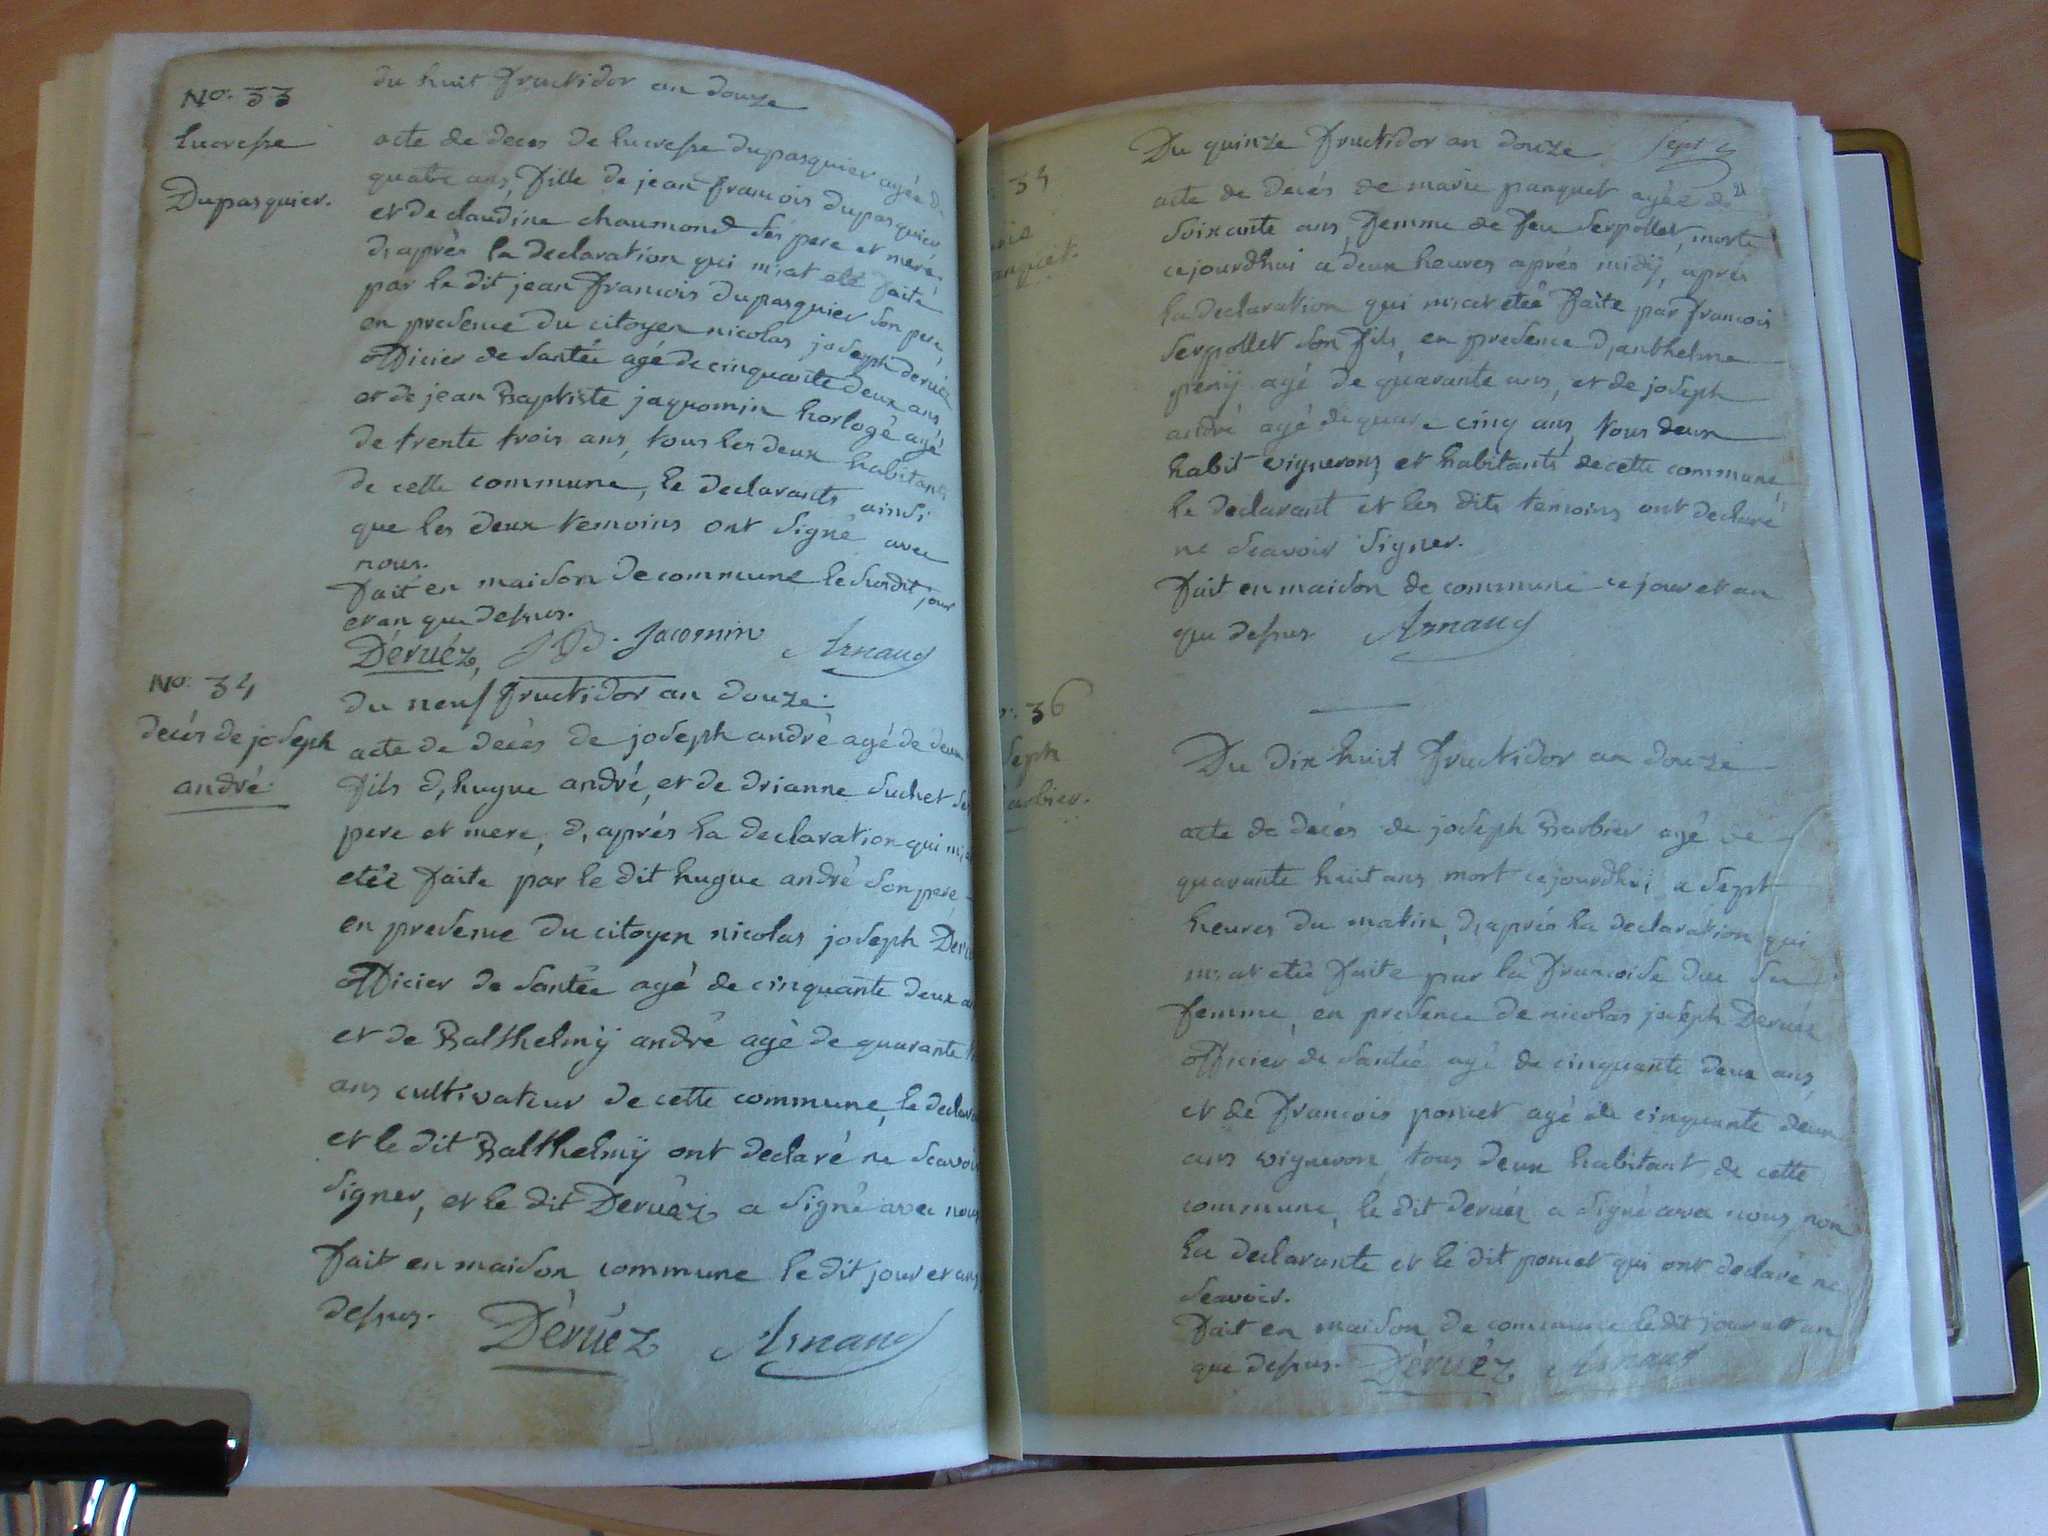 No. 33
Lucresse
Dupasquier.
du huit fructidor an douze
acte de deces de lucresse dupasquier agée de
quatre ans, fille de jean francois dupasquier
et de claudine chaumond ses pere et mere,
d,après la declaration qui m,at eté faite
par le dit jean francois dupasquier son pere,
en presence du citoyen nicolas joseph deruéz
officier de santée agé de cinquante deux ans
et de jean Baptiste jaquomin horlogé agé
de trente trois ans, tous les deux habitants
de cette commune, le declarants ainsi
que les deux temoins ont signé avec
nous.
fait en maison de commune le susdit jour
et an que dessus.
Déruéz, JB. Jacomin Arnaud
No. 34
decés de joseph
andré
du neuf fructidor an douze.
acte de decès de joseph andré agé de deux
fils d,hugue andré, et de drianne suchet ses
pere et mere, d,aprés la declaration qui m,a
etée faite par le dit hugue andré son pere
en presence du citoyen nicolas joseph
officier de santée agé de cinquante deux
et de Balthelmÿ andré agé de quarante
ans cultivateur de cette commune, le
et le dit Balthelmÿ ont declaré ne scavoir
signer, et le dit Deruéz a signé avec nous
fait en maison commune le dit jour et an
dessus. Déruéz Arnaud
34
anquet.
Du quinze fructidor an douze sept
acte de decés de marie panquet agée de
soixante ans, femme de feu serpollet, morte
cejourdhui a deux heures aprés midÿ, aprés
la declaration qui m,at etée faite par francois
serpollet son fils, en presence d,anthelme
penÿ agé de quarante ans, et de joseph
andré agé de cinq ans, tous deux
habit vignerons, et habitants de cette commune,
le declarant et les dits temoins ont declaré
ne scavoir signer.
fait en maison de commune ce jour et an
que dessus Arnaud
36
seph
arbier.
Du dix huit fructidor an douze
acte de decés de joseph Barbier agé de
quarante huit ans mort cejourdhui a sept
heures du matin, d,aprés la declaration qui
m,at etée faite par la francoise duc sa
femme, en presence de nicolas joseph Deruéz
officier de santée agé de cinquante deux ans,
et de francois poncet agé de cinquante deux
ans vigneron, tous deux habitant de cette
commune, le dit deruéz a signé avec nous, non
la declarante et le dit poncet qui ont declaré ne
scavoir.
fait en maison de commune le dit jour et an
que dessus. Déruéz Arnaud